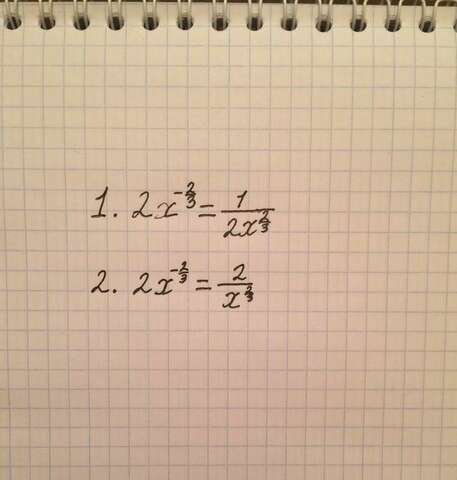 1. $2x^{-\frac{2}{3}} = \frac{1}{2x^{\frac{2}{3}}}$
2. $2x^{-\frac{2}{3}} = \frac{2}{x^{\frac{2}{3}}}$